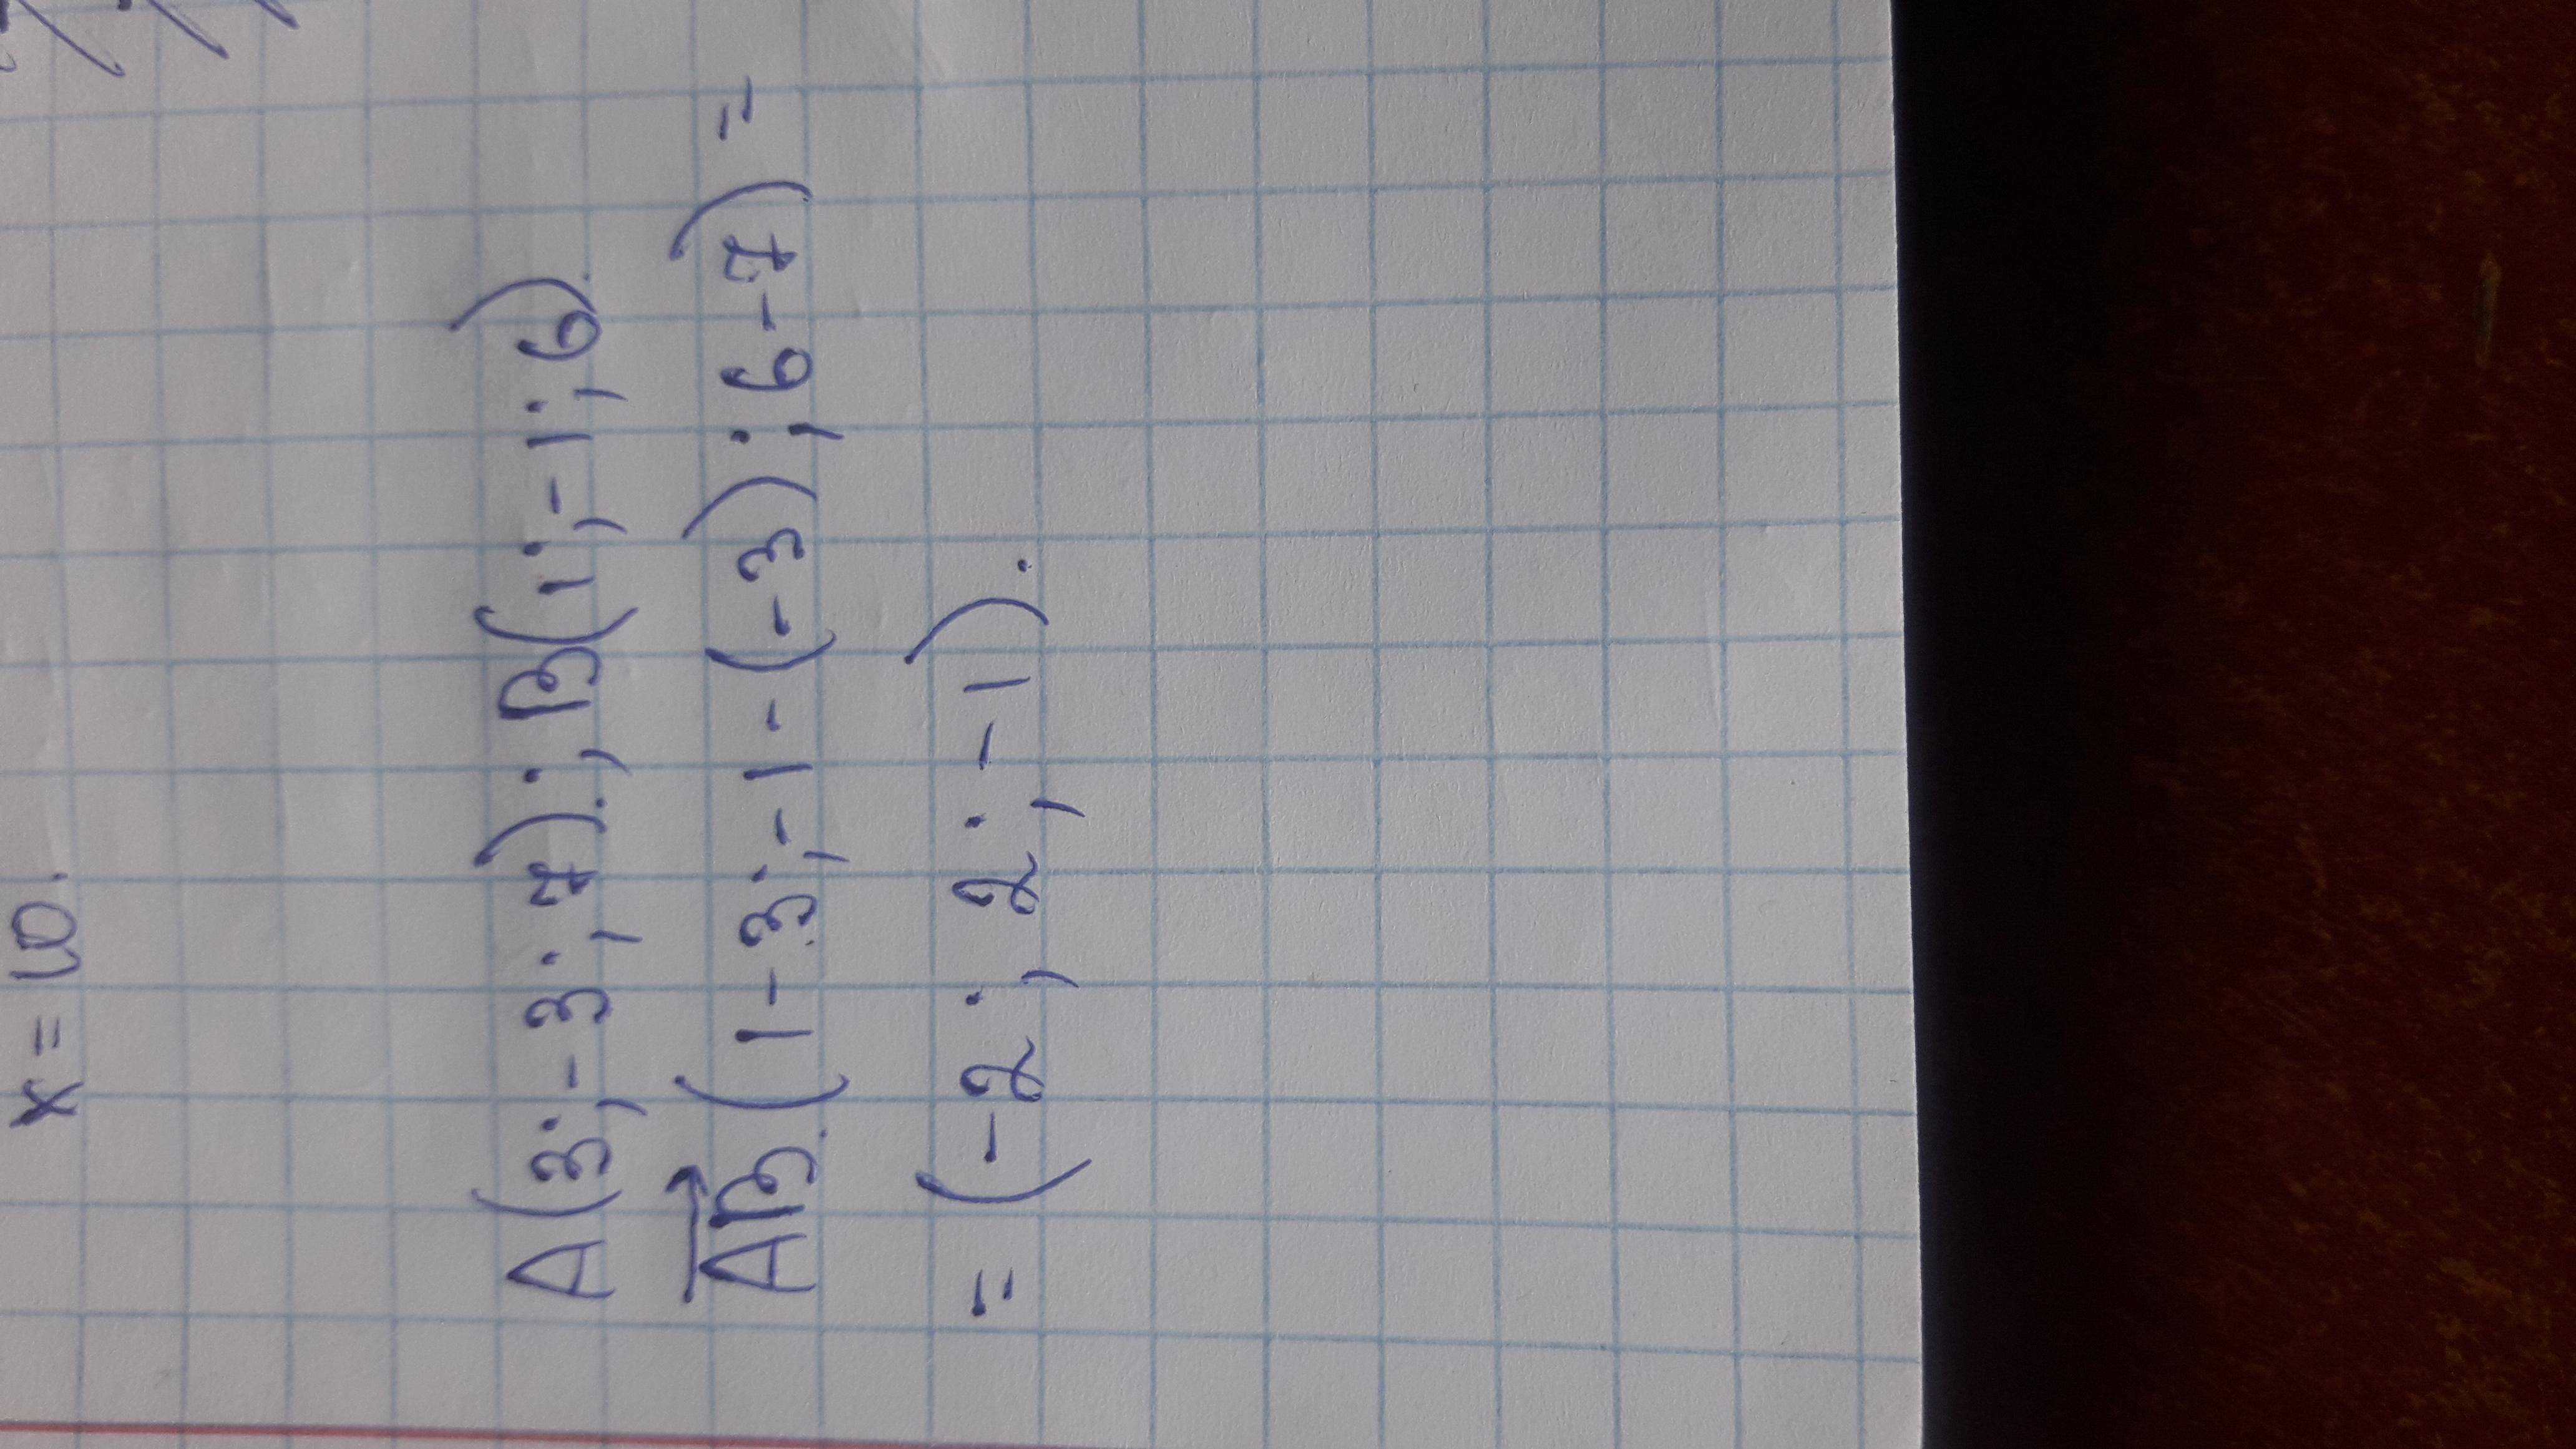 x = 10.
A(3;-3;7).; B(1;-1;6).
AB (1-3;-1-(-3);6-7) =
= (-2; 2; -1).